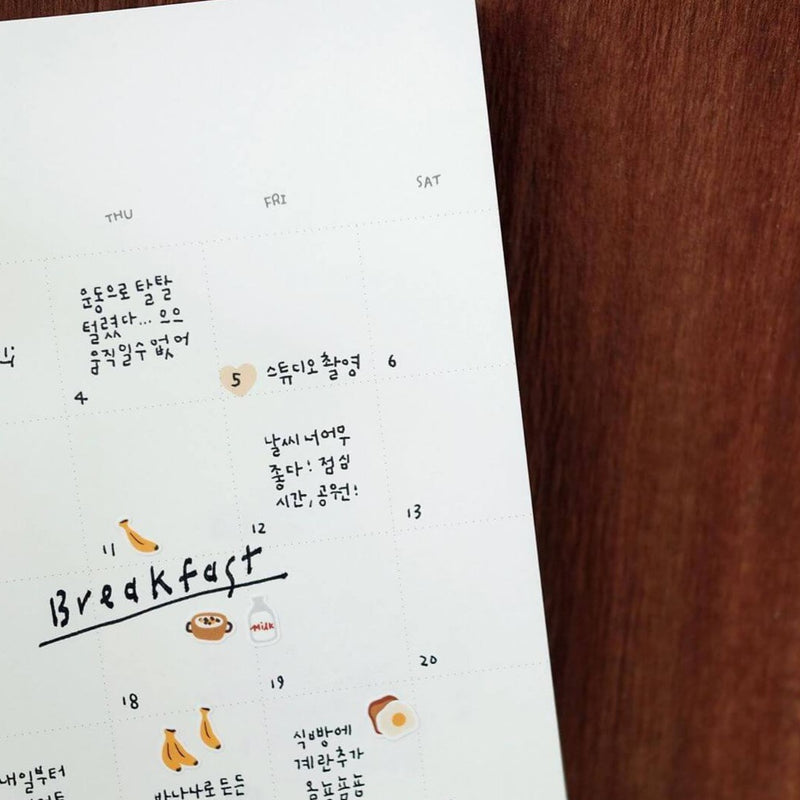 THU
FRI
SAT
운동으로 탈탈
털렸다... 으으
움직일수 없어
4
5
스튜디오 촬영
6
날씨 너어무
좋다! 점심
시간, 공원!
11
12
13
Breakfast
Milk
18
19
20
내일부터
바나나로 든든
식빵에
계란추가